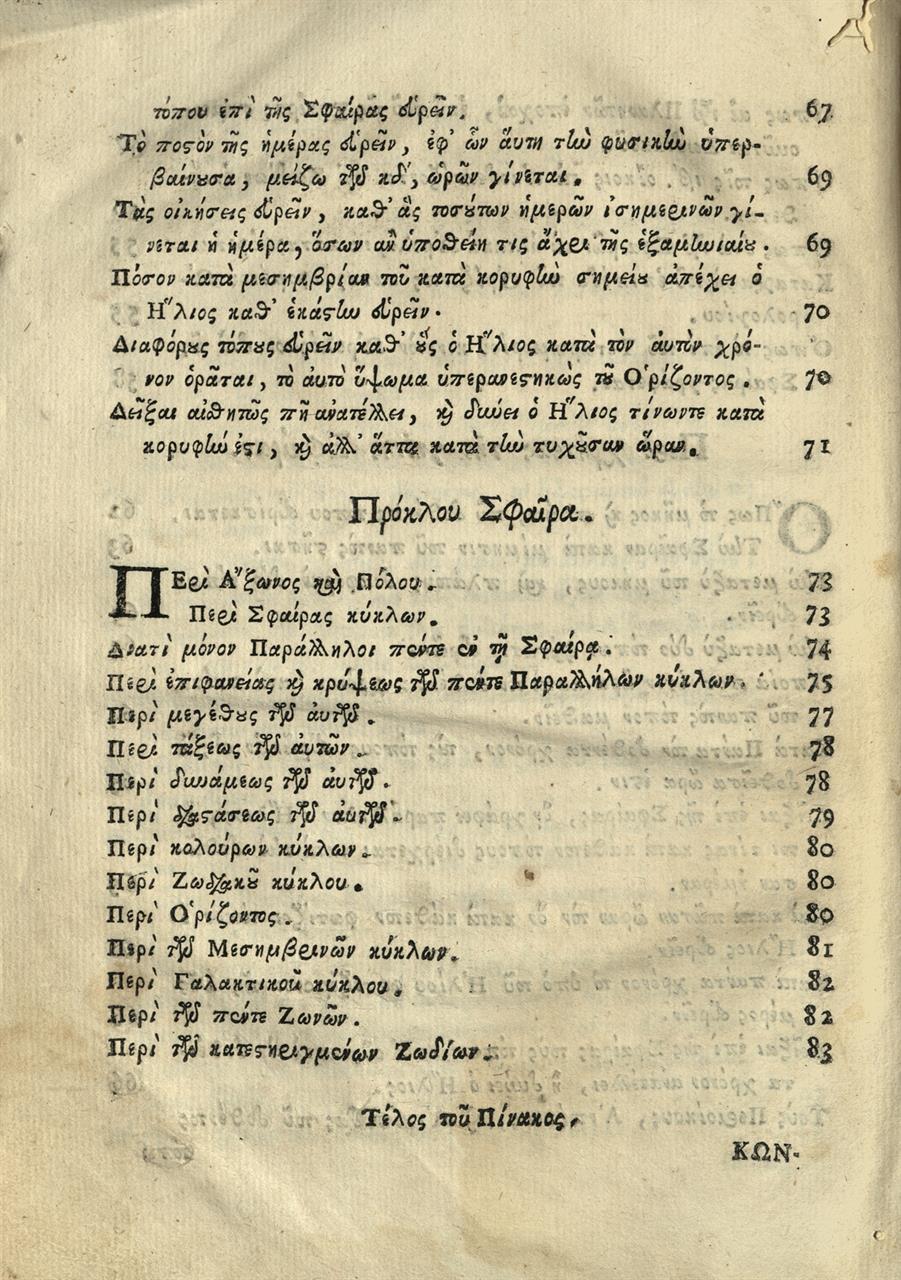 τόπου ἐπὶ τῆς Σφαίρας εὑρεῖν. 67
Τὸ ποσὸν τῆς ἡμέρας εὑρεῖν, ἐφ' ὧν ἅυτη τὴν φυσικὴν ὑπερ-
βαίνουσα, μείζω τῶν κδ', ὡρῶν γίνεται. 69
Τὰς οἰκήσεις εὑρεῖν, καθ' ἃς τοσούτων ἡμερῶν ἰσημερινῶν γί-
νεται ἡ ἡμέρα, ὅσων ἂν ὑποθείη τις ἄχρι τῆς ἑξαμηνιαίου. 69
Πόσον κατὰ μεσημβρίαν τοῦ κατὰ κορυφὴν σημείου ἀπέχει ὁ
Ἥλιος καθ' ἑκάστην εὑρεῖν. 70
Διαφόρους τόπους εὑρεῖν καθ' οὓς ὁ Ἥλιος κατὰ τὸν ἀυτὸν χρό-
νον ὁρᾶται, τὸ ἀυτὸ ὕψωμα ὑπερανεστηκὼς τοῦ Ὁρίζοντος. 70
Δεῖξαι αἰσθητῶς πῆ ἀνατέλλει, καὶ δύνει ὁ Ἥλιος τίνωντε κατὰ
κορυφὴν ἐστι, καὶ ἀλλ' ἄττα κατὰ τὴν τυχοῦσαν ὥραν. 71
Πρόκλου Σφαῖρα.
ΠΕρὶ Ἄξωνος καὶ Πόλου. 73
Περὶ Σφαίρας κύκλων. 73
Διατὶ μόνον Παράλληλοι πέντε ἐν τῇ Σφαίρᾳ. 74
Περὶ ἐπιφανείας καὶ κρύψεως τῶν πέντε Παραλλήλων κύκλων. 75
Περὶ μεγέθους τῶν ἀυτῶν. 77
Περὶ τάξεως τῶν ἀυτῶν. 78
Περὶ δυνάμεως τῶν ἀυτῶν. 78
Περὶ διαστάσεως τῶν ἀυτῶν. 79
Περὶ κολούρων κύκλων. 80
Περὶ Ζωδιακοῦ κύκλου. 80
Περὶ Ὁρίζοντος. 80
Περὶ τῶν Μεσημβρινῶν κύκλων. 81
Περὶ Γαλακτικοῦ κύκλου. 82
Περὶ τῶν πέντε Ζωνῶν. 82
Περὶ τῶν κατεστηριγμένων Ζωδίων. 83
Τέλος τοῦ Πίνακος.
ΚΩΝ-